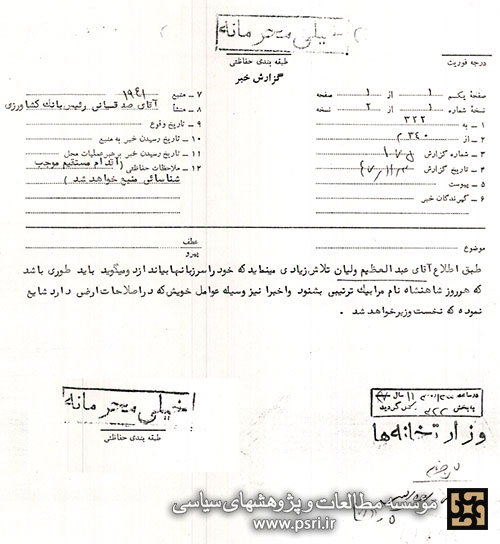 خیلی محرمانه
طبقه بندی حفاظتی
گزارش خبر
درجه فوریت
صفحه یکم ۱ از ۱ صفحه
نسخه شماره ۱ از ۲ نسخه
۱ - به ۳۲۲
۲ - از ۳۴۰ م
۳ - شماره گزارش
۴ - تاریخ گزارش
۵ - پیوست
۶ - گیرندگان خبر
۷ - منبع ۱۹۴۱
۸ - منشأ آقای صدقسیانی رئیس بانک کشاورزی
۹ - تاریخ وقوع
۱۰ - تاریخ رسیدن خبر به منبع
۱۱ - تاریخ رسیدن خبر برهبر عملیات محل
۱۲ - ملاحظات حفاظتی (اقدام مستقیم موجب
شناسائی منبع خواهد شد)
موضوع
عطف
پیرو
طبق اطلاع آقای عبدالعظیم ولیان تلاش زیادی مینماید که خود را سر زبانها بیاندازد ومیگوید باید طوری باشد
که هرروز شاهنشاه نام مرا بیک ترتیبی بشنود واخیرا نیز وسیله عوامل خویش که در اصلاحات ارضی دارد شایع
نموده که نخست وزیر خواهد شد .
خیلی محرمانه
طبقه بندی حفاظتی
در ساعت
وزارتخانه‌ها
موسسه مطالعات و پژوهشهای سیاسی
www.psri.ir